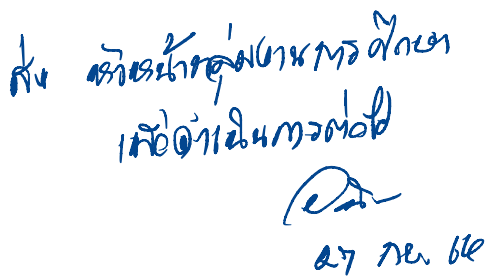 ส่ง หัวหน้ากลุ่มงานการศึกษา
เพื่อดำเนินการต่อไป
27 กย. 64